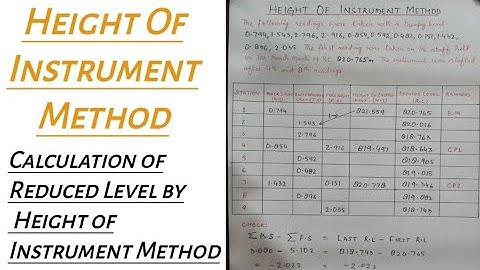 Height Of
Instrument
Method
Calculation of
Reduced Level by
Height of
Instrument Method
HEIGHT OF INSTRUMENT METHOD
The following readings were taken with a Dumpy level
0.794, 1.543, 2.796, 2.916, 0.854, 0.592, 0.482, 0.151, 1.432,
0.896, 2.035 The first reading were taken on the staff held
on the Bench mark of RL 820.765m The instrument was shifted
after 4th and 8th readings.
STATION BACK SIGHT (B.S) INTERMEDIATE SIGHT (I.S) FORE SIGHT (F.S) HEIGHT OF INSTRUMENT (H.I) REDUCED LEVEL (R.L) REMARKS
1 0.794 821.559 820.765 B.M
2 1.543 820.016
3 2.796 818.763
4 0.854 2.916 819.497 818.643 CP1
5 0.592 818.905
6 0.482 819.015
7 1.432 0.151 820.778 819.346 CP2
8 0.896 819.882
9 2.035 818.743
CHECK:
ΣB.S - ΣF.S = LAST R.L - FIRST R.L
3.080 - 5.102 = 818.743 - 820.765
= -2.022 = -2.022